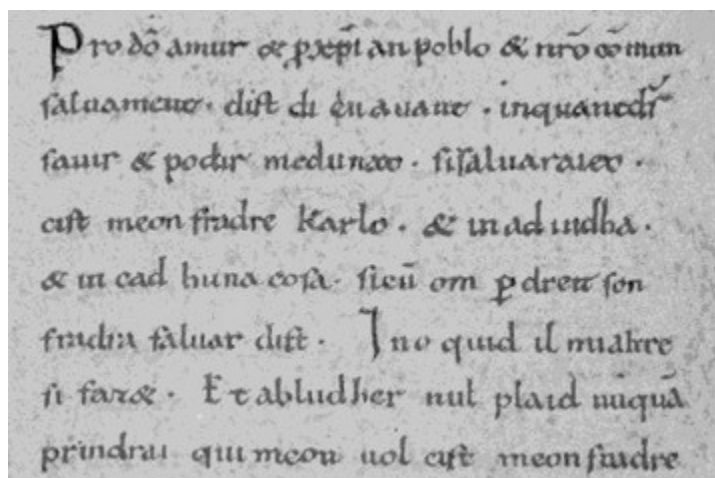 Pro dō amur & p xpīan poblo & nrō cōmun
saluament. dist di en auant. inquantdſ
sauir & podir medunat. sisaluaraieo.
cist meon fradre Karlo. & in ad iudha.
& in cad huna cosa. sicū om p dreit son
fradra saluar dift. Ino quid il mialtre
si faz&. Et abludher nul plaid nūquā
prindrai qui meon uol cist meon fradre